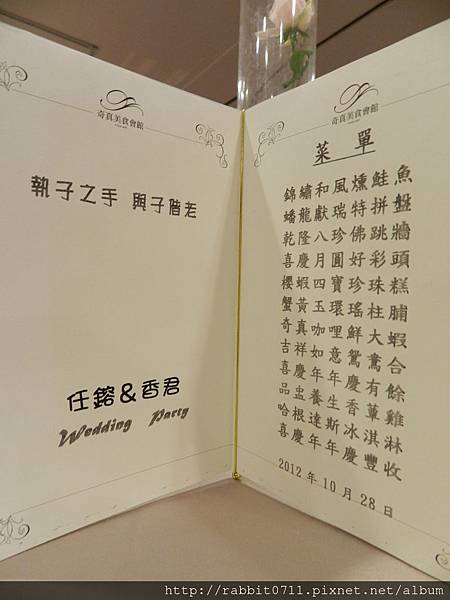 奇真美食會館
執子之手 與子偕老
任鎔＆香君
Wedding Party
奇真美食會館
菜單
錦繡和風燻鮭魚
蟠龍獻瑞特拼盤
乾隆八珍佛跳牆
喜慶月圓好彩頭
櫻蝦四寶珍珠糕
蟹黃玉環瑤柱脯
奇真咖哩鮮大蝦
吉祥如意鴛鴦合
喜慶年年慶有餘
品盅養生香蕈雞
哈根達斯冰淇淋
喜慶年年慶豐收
2012年10月28日
http://rabbit0711.pixnet.net/album